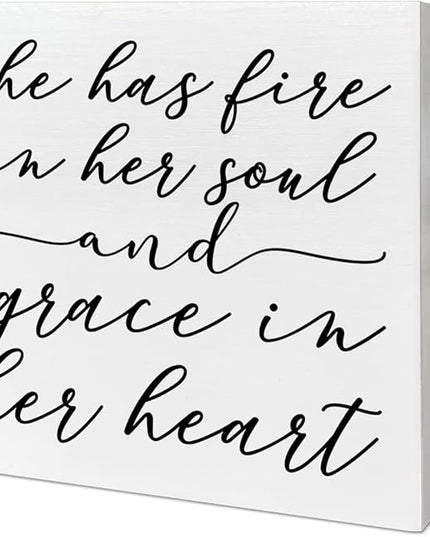 he has fire
in her soul
and
grace in
her heart